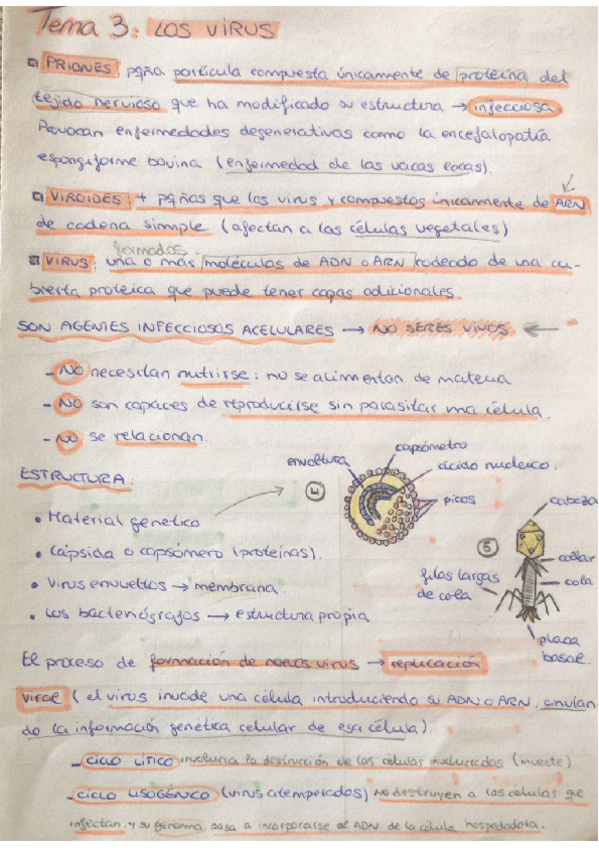 Tema 3: LOS VIRUS
PRIONES: pqña partícula compuesta únicamente de proteína del
tejido nervioso que ha modificado su estructura → infecciosa
Provocan enfermedades degenerativas como la encefalopatía
espongiforme bovina (enfermedad de las vacas locas).
VIROIDES: + pqños que los virus y compuestos únicamente de ARN
de cadena simple (afectan a las células vegetales)
formados
VIRUS: una o más moléculas de ADN o ARN rodeado de una cu-
bierta proteica que puede tener capas adicionales.
SON AGENTES INFECCIOSOS ACELULARES → NO SERES VIVOS ←
- NO necesitan nutrirse: no se alimentan de materia
- NO son capaces de reproducirse sin parasitar una célula.
- NO se relacionan.
ESTRUCTURA:
envoltura
capsómetro
ácido nucleico.
picos
4
• Material genético
• Cápsida o capsómero (proteínas).
• Virus envueltos → membrana.
• Los bacteriógrafos → estructura propia
5
cabeza
collar
cola
filas largas
de cola
placa
basal
El proceso de formación de nuevos virus → replicación
viral (el virus invade una célula introduciendo su ADN o ARN, anulan-
do la información genética celular de esa célula).
- CICLO LÍTICO involucra la destrucción de las células involucradas (muerte)
- CICLO LISOGÉNICO (virus atemperados) NO destruyen a las células qe
infectan, y su genoma pasa a incorporarse al ADN de la célula hospedadora.